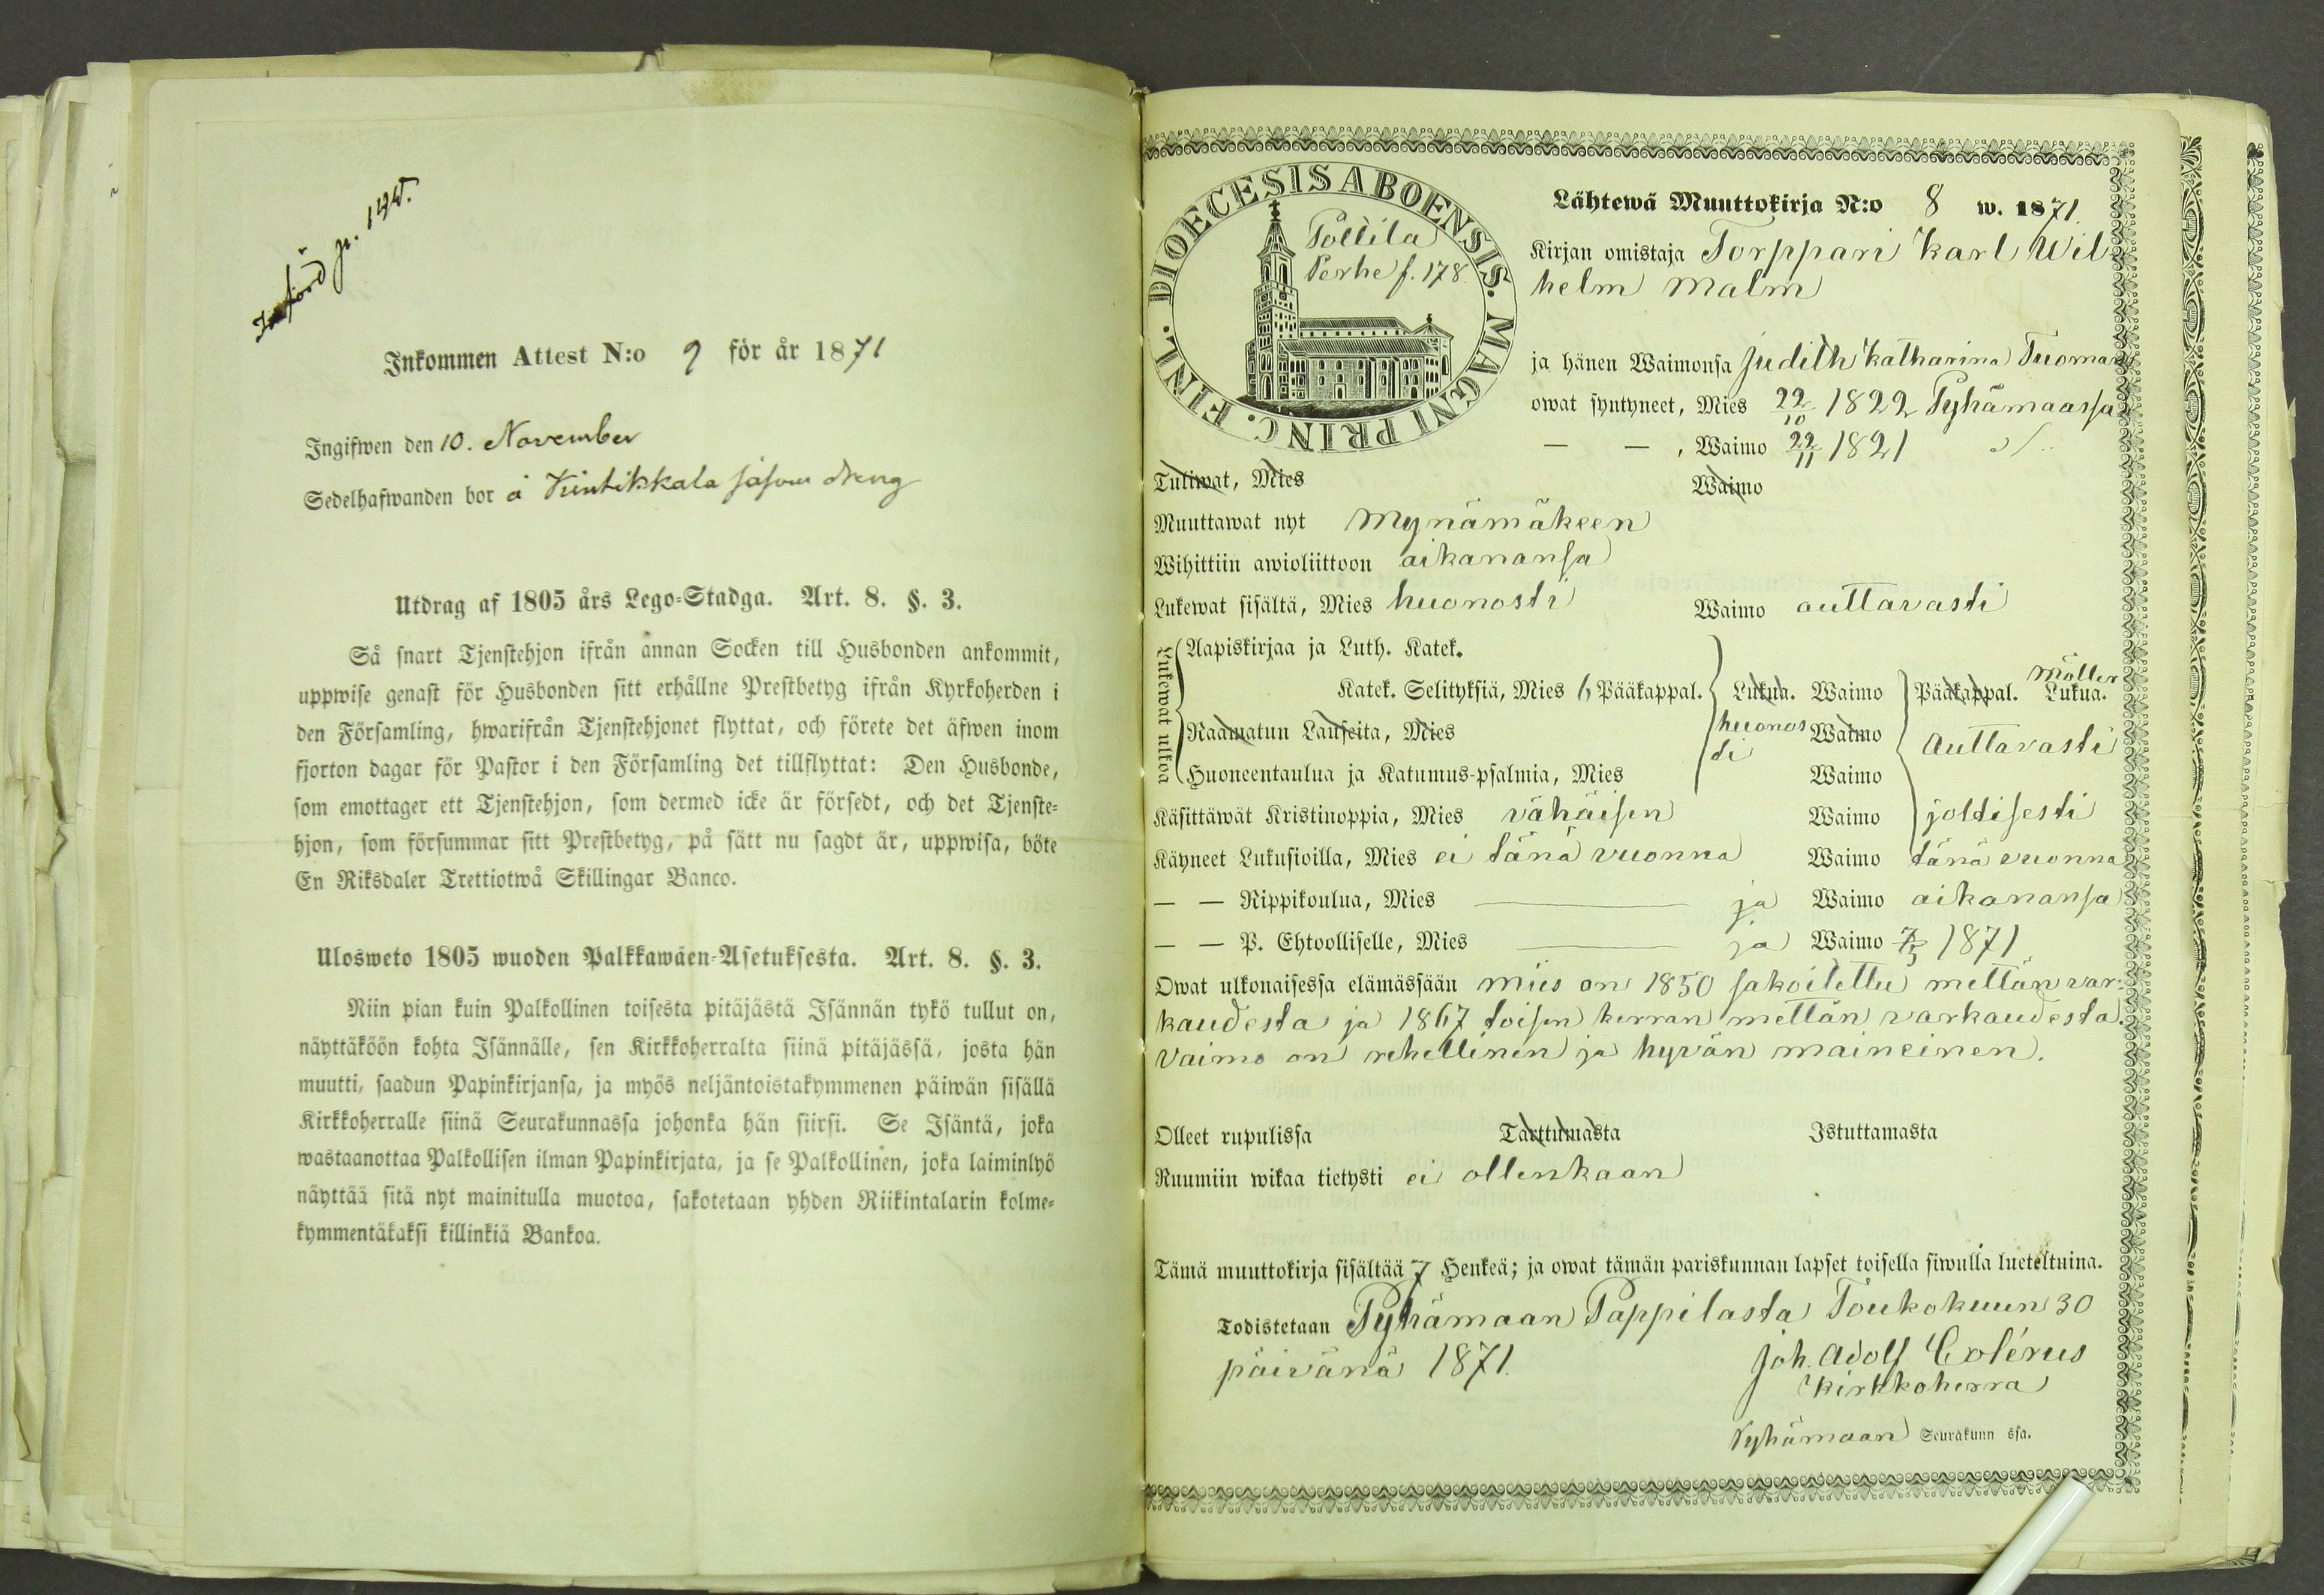 Införd p. 145.
Inkommen Attest N:o 9 för år 1871
Ingifwen den 10. November
Sedelhafwanden bor å Kintikkala såsom dreng
Utdrag af 1805 års Lego-Stadga. Art. 8. §. 3.
Så snart Tjenstehjon ifrån annan Socken till Husbonden ankommit,
uppwise genast för Husbonden sitt erhållne Prestbetyg ifrån Kyrkoherden i
den Församling, hwarifrån Tjenstehjonet flyttat, och förete det äfwen inom
fjorton dagar för Pastor i den Församling det tillflyttat: Den Husbonde,
som emottager ett Tjenstehjon, som dermed icke är försedt, och det Tjenste-
hjon, som försummar sitt Prestbetyg, på sätt nu sagdt är, uppwisa, böte
En Riksdaler Trettiotwå Skillingar Banco.
Ulosweto 1805 wuoden Palkkawäen-Asetuksesta. Art. 8. §. 3.
Niin pian kuin Palkollinen toisesta pitäjästä Isännän tykö tullut on,
näyttäköön kohta Isännälle, sen Kirkkoherralta siinä pitäjässä, josta hän
muutti, saadun Papinkirjansa, ja myös neljäntoistakymmenen päiwän sisällä
Kirkkoherralle siinä Seurakunnassa johonka hän siirsi. Se Isäntä, joka
wastaanottaa Palkollisen ilman Papinkirjata, ja se Palkollinen, joka laiminlyö
näyttää sitä nyt mainitulla muotoa, sakotetaan yhden Riikintalarin kolme-
kymmentäkaksi killinkiä Bankoa.
DIOECESIS ABOENSIS. MAGNI PRINC. FINL.
Pollila
Perhe f. 178
Lähtewä Muuttokirja N:o 8 w. 1871
Kirjan omistaja Torppari Karl Wil-
helm Malm
ja hänen Waimonsa Judith Katharina Tuomant
owat syntyneet, Mies 22/10 1822 Pyhämaassa
— — , Waimo 22/11 1821
Tuliwat, Mies Waimo
Muuttawat nyt Mynämäkeen
Wihittiin awioliittoon aikanansa
Lukewat sisältä, Mies huonosti Waimo auttavasti
Lukewat ulkoa
Aapiskirjaa ja Luth. Katek.
Möller
Katek. Selityksiä, Mies 6 Pääkappal. Lukua. Waimo Pääkappal. Lukua.
Raamatun Lauseita, Mies huonos Waimo Auttavasti
ti
Huoneentaulua ja Katumus-psalmia, Mies Waimo
Käsittäwät Kristinoppia, Mies vähäisen Waimo joltisesti
Käyneet Lukusioilla, Mies ei tänä vuonna Waimo tänä vuonna
— — Rippikoulua, Mies — ja Waimo aikanansa
— — P. Ehtoolliselle, Mies — ja Waimo 7/5 1871
Owat ulkonaisessa elämässään mies on 1850 sakoitettu mettän var-
kaudesta ja 1867 toisen kerran mettän varkaudesta.
Vaimo on rehellinen ja hyvän maineinen.
Olleet rupulissa Tarttumasta Istuttamasta
Ruumiin wikaa tietysti ei ollenkaan
Tämä muuttokirja sisältää 7 Henkeä; ja owat tämän pariskunnan lapset toisella siwulla lueteltuina.
Todistetaan Pyhämaan Pappilasta Toukokuun 30
päivänä 1871.
Joh. Adolf Colérus
Kirkkoherra
Pyhämaan Seurakunn ssa.